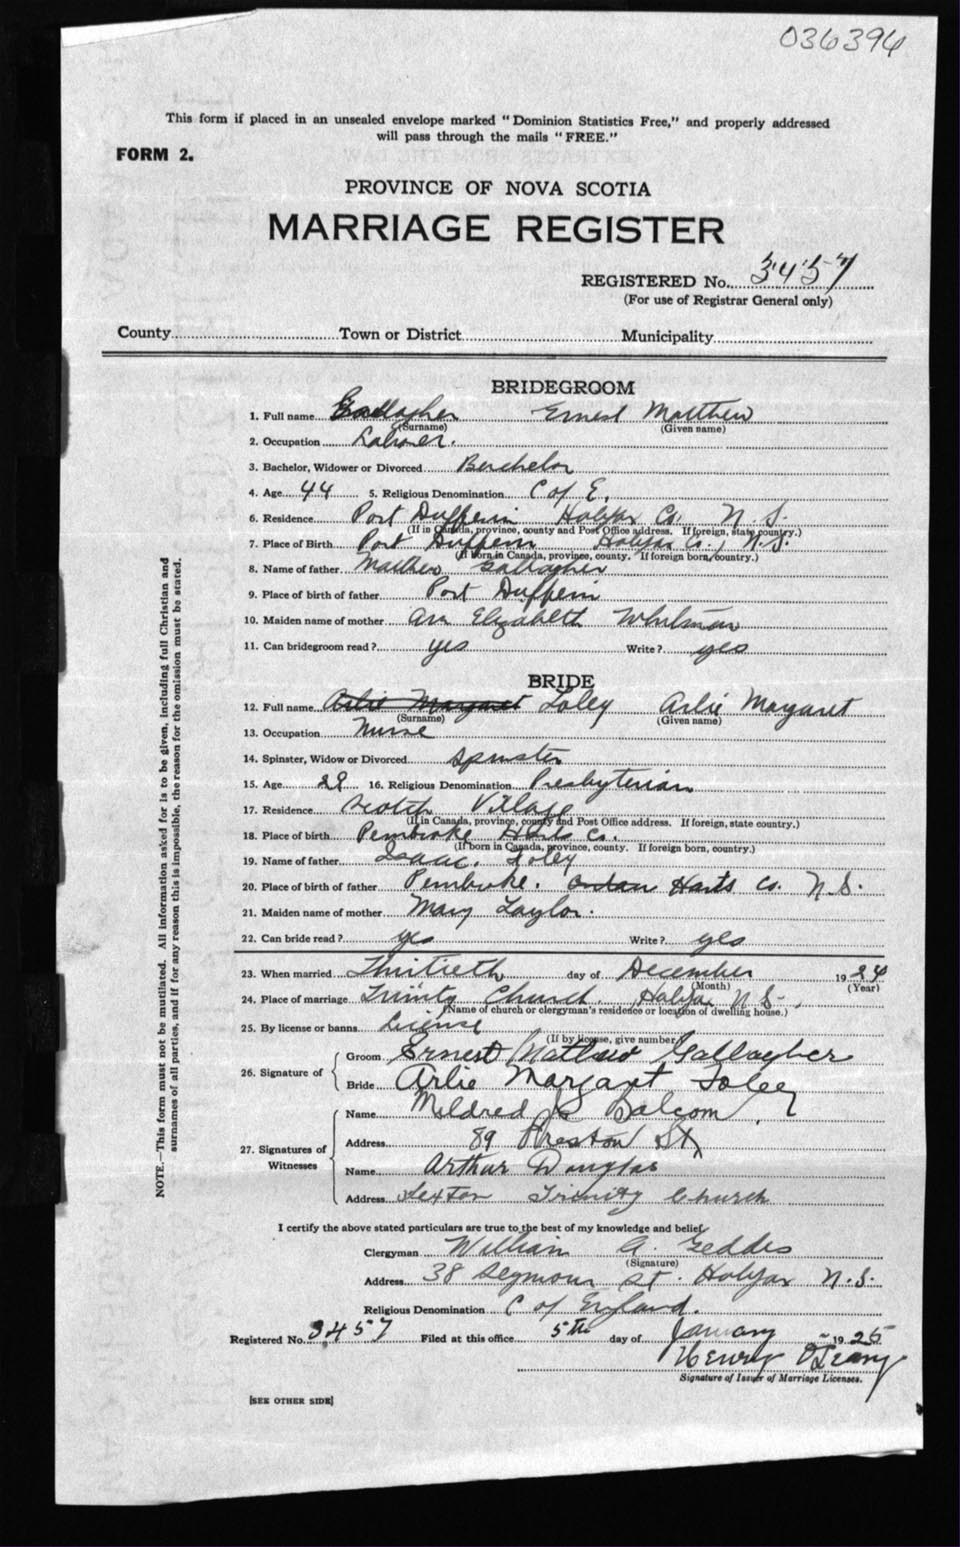 036396
This form if placed in an unsealed envelope marked "Dominion Statistics Free," and properly addressed
will pass through the mails "FREE."
FORM 2.
PROVINCE OF NOVA SCOTIA
MARRIAGE REGISTER
REGISTERED No. 3457
(For use of Registrar General only)
County Town or District Municipality
BRIDEGROOM
1. Full name Gallagher Ernest Matthew
(Surname) (Given name)
2. Occupation Laborer.
3. Bachelor, Widower or Divorced Bachelor
4. Age 44 5. Religious Denomination C of E.
6. Residence Port Dufferin Halifax Co. N.S.
(If in Canada, province, county and Post Office address. If foreign, state country.)
7. Place of Birth Port Dufferin Halifax Co., N.S.
(If born in Canada, province, county. If foreign born, country.)
8. Name of father Matthew Gallagher
9. Place of birth of father Port Dufferin
10. Maiden name of mother Ann Elizabeth Whitman
11. Can bridegroom read? yes Write? yes
BRIDE
12. Full name Arlie Margaret Foley Arlie Margaret
(Surname) (Given name)
13. Occupation Nurse
14. Spinster, Widow or Divorced Spinster
15. Age 28 16. Religious Denomination Presbyterian
17. Residence Scotch Village
(If in Canada, province, county and Post Office address. If foreign, state country.)
18. Place of birth Pembroke Hants Co.
(If born in Canada, province, county. If foreign born, country.)
19. Name of father Isaac. Foley
20. Place of birth of father Pembroke. Hants Co. N.S.
21. Maiden name of mother Mary Taylor.
22. Can bride read? yes Write? yes
23. When married Thirtieth day of December 1924
(Month) (Year)
24. Place of marriage Trinity Church. Halifax N.S.,
(Name of church or clergyman's residence or location of dwelling house.)
25. By license or banns License
(If by license, give number)
26. Signature of
Groom Ernest Matthew Gallagher
Bride Arlie Margaret Foley
27. Signatures of
Witnesses
Name Mildred Balcom
Address 89 Preston St
Name Arthur Douglas
Address Sexton Trinity Church
I certify the above stated particulars are true to the best of my knowledge and belief
Clergyman William A. Geddes
(Signature)
Address 38 Seymour St. Halifax N.S.
Religious Denomination C of England.
Registered No. 3457 Filed at this office 5th day of January 1925
Henry O'Leary
Signature of Issuer of Marriage Licenses.
[SEE OTHER SIDE]
NOTE.—This form must not be mutilated. All information asked for is to be given, including full Christian and
surnames of all parties, and if for any reason this is impossible, the reason for the omission must be stated.